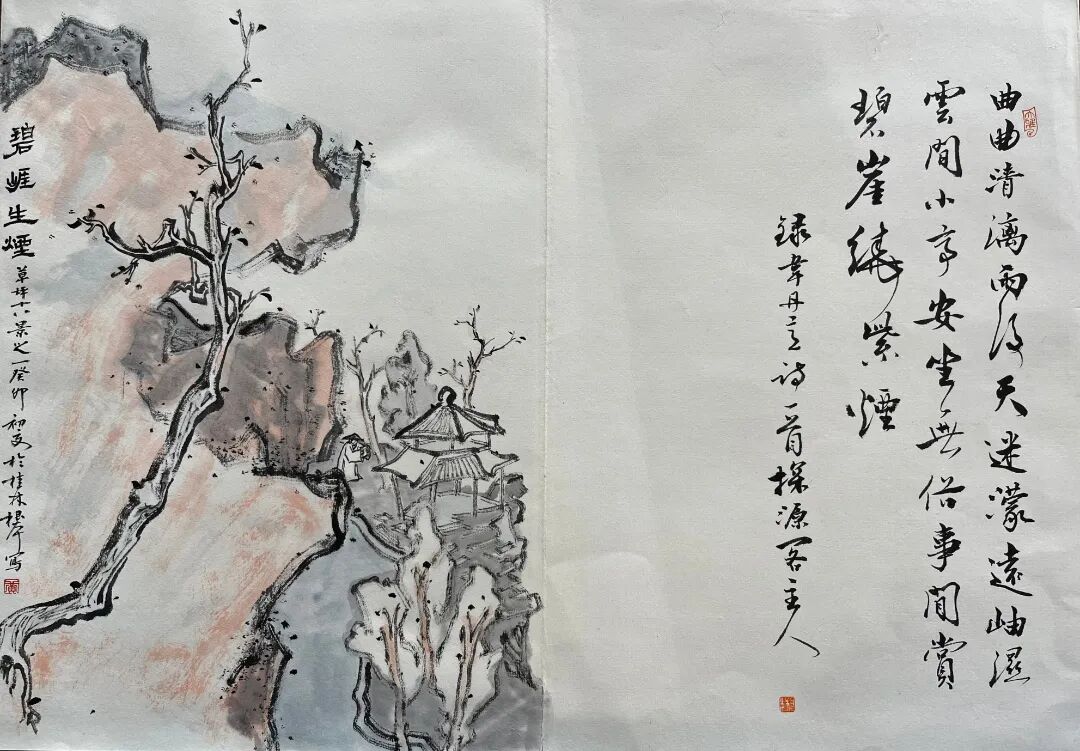 曲曲清漓雨後天迷濛遠岫濕
雲間小亭安坐無俗事閒賞
碧崖繞紫煙
錄韋丹言詩一首探源閣主人
碧崕生煙
草坪十八景之一癸卯初夏於桂林寫